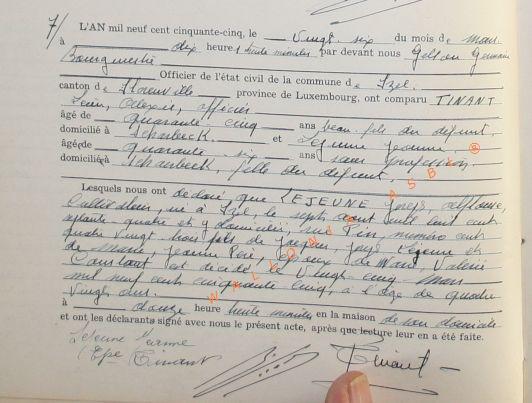 7/ L'AN mil neuf cent cinquante-cinq, le vingt six du mois de Mars
à dix heures trente minutes par devant nous Germain
Bourgmestre
Officier de l'état civil de la commune de Izel.
canton de Florenville province de Luxembourg, ont comparu TINANT
officier
âgé de quarante cinq ans beau fils du défunt.
domicilié à Scharbeck. et Lejeune Jeanne.
âgée de quarante six ans sans profession
domiciliée à Scharbeck, fille du défunt.
Lesquels nous ont déclaré que LEJEUNE Joseph, Alphonse,
Cultivateur, né à Izel, le sept août mil huit cent
septante quatre et y domicilié, numéro cent
quatre vingt trois fils de Jacques, Lejeune et
de Marie, Jeanne époux de Valérie
Constant est décédé le vingt-cinq Mars
mil neuf cent cinquante cinq, à l'âge de quatre
vingts ans.
à douze heure trente minutes en la maison de son domicile
et ont les déclarants signé avec nous le présent acte, après que lecture leur en a été faite.
Lejeune Jeanne
Epse Tinant
Tinant
WALLONIA ASBL